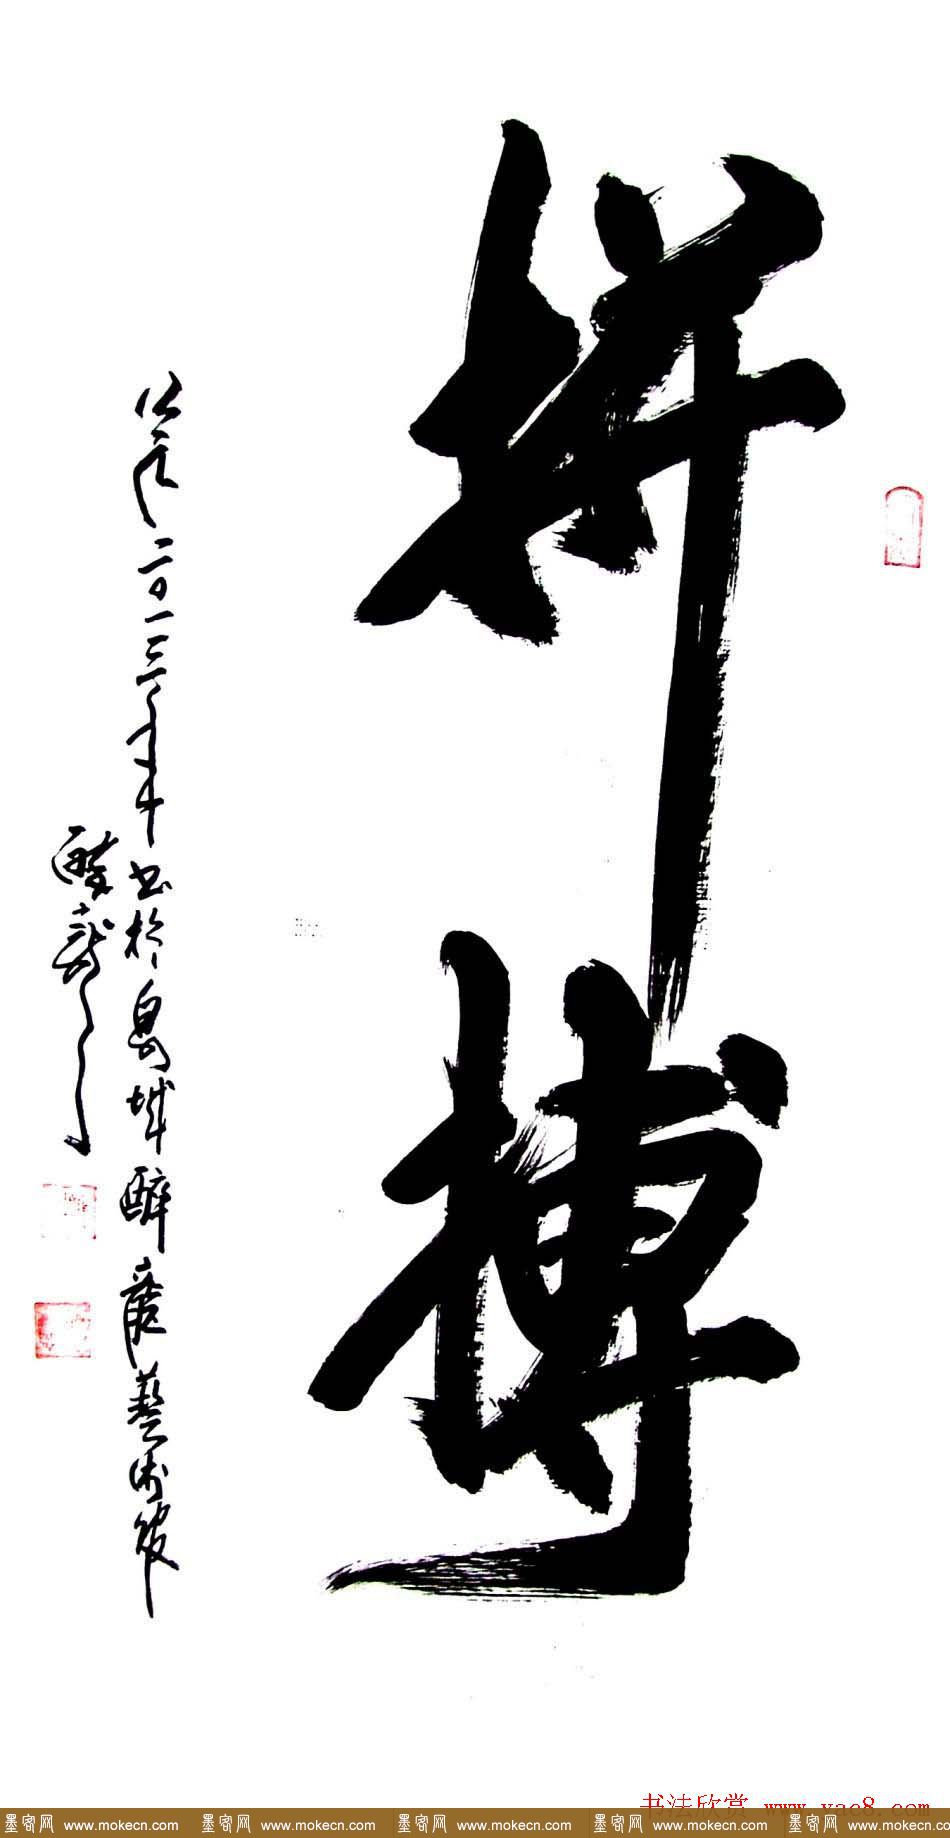 拼搏
公元二〇一三年书於岛城醉龙艺术馆
醉龙
书法欣赏 www.yac8.com
墨客网 www.mokecn.com 墨客网 www.mokecn.com 墨客网 www.mokecn.com 墨客网 www.mokecn.com 墨客网 www.mokecn.co